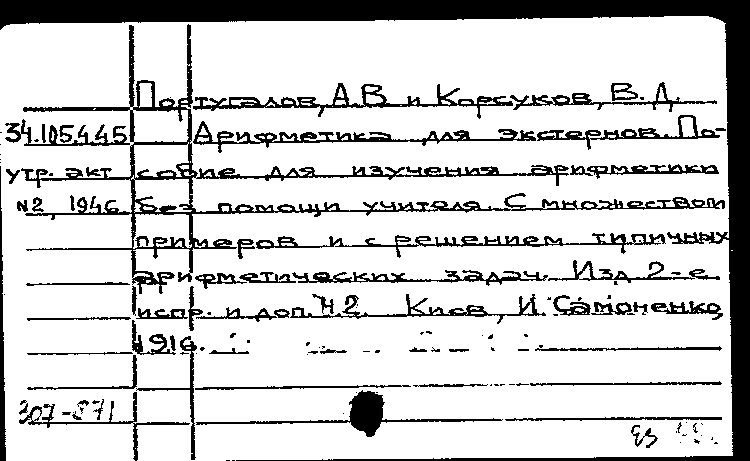 Португалов, А.В и Корсуков, В. Д.
34.105.4.45 Арифметика для экстернов. По-
утр. акт собие для изучения арифметики
№2, 1946. без помощи учителя. С множеством
примеров и с решением типичных
арифметических задач. Изд 2-е
испр. и доп. Ч 2. Киев, И. Самоненко,
1916.
307-871